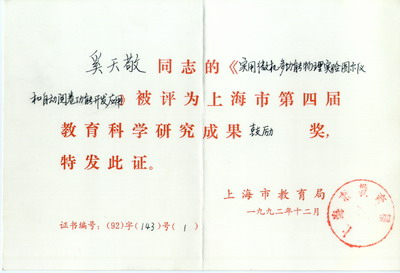 奚天敬 同志的《实用微机多功能物理实验图示仪
和自动阅卷功能开发应用 被评为上海市第四届
教育科学研究成果 鼓励 奖，
特发此证。
上海市教育局
一九九二年十二月
证书编号：(92)字(143)号(1)